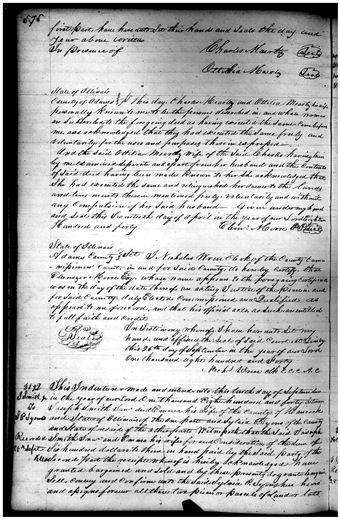 576
first part have hereunto set their hands and seals the day and
year above written
In presence of Charles Maertz (Seal)
Ottilia Maertz (Seal)
State of Illinois
County of Adams } This day Charles Maertz and Ottilia Maertz being
personally known to me to be the persons described in and whose names
are subscribed to the foregoing deed as having executed the same came before
me and acknowledged that they had executed the same freely and
voluntarily for the uses and purposes therein expressed
And the said Ottilia Maertz wife of the said Charles having been
by me examined separate and apart from her husband and the contents
of said deed having been made known to her she acknowledged that
she had executed the same and relinquished her dower to the lands
and tenements therein mentioned freely voluntarily and without
any compulsion of her said husband Given under my hand
and seal this day of April in the year of our Lord eighteen
hundred and forty Moore (Seal)
State of Illinois
Adams County } Sct I Nicholas Wren Clerk of the County Com
missioners Court in and for said County do hereby certify that
Moore Esqr whose name appears to the foregoing certificate
was on the day of the date thereof an acting Justice of the Peace in and
for said County duly elected commissioned and qualified as
appears to me of record and that his official acts as such are entitled
to full faith and credit
In testimony whereof I have hereunto set my
(Seal) hand and affixed the seal of said Court at Quincy
this 26th day of September in the year of our Lord
One thousand eight hundred and forty
Nichs Wren Clk C.C.C. A.C
This Indenture made and entered into this day of September
J Smith Jr in the year of our Lord one thousand eight hundred and forty between
To Joseph Smith Jr and Emma his wife of the County of Hancock
and State of Illinois of the one part and
and State aforesaid of the other part Witnesseth that the said Joseph
Smith Jr and Emma his wife for and consideration of the sum of
hundred dollars to them in hand paid by the said party of the
second part the receipt whereof is hereby acknowledged have
granted bargained and sold and by these presents do grant bargain
sell convey and confirm unto the said his heirs
and assigns forever all those two pieces or parcels of land or lots